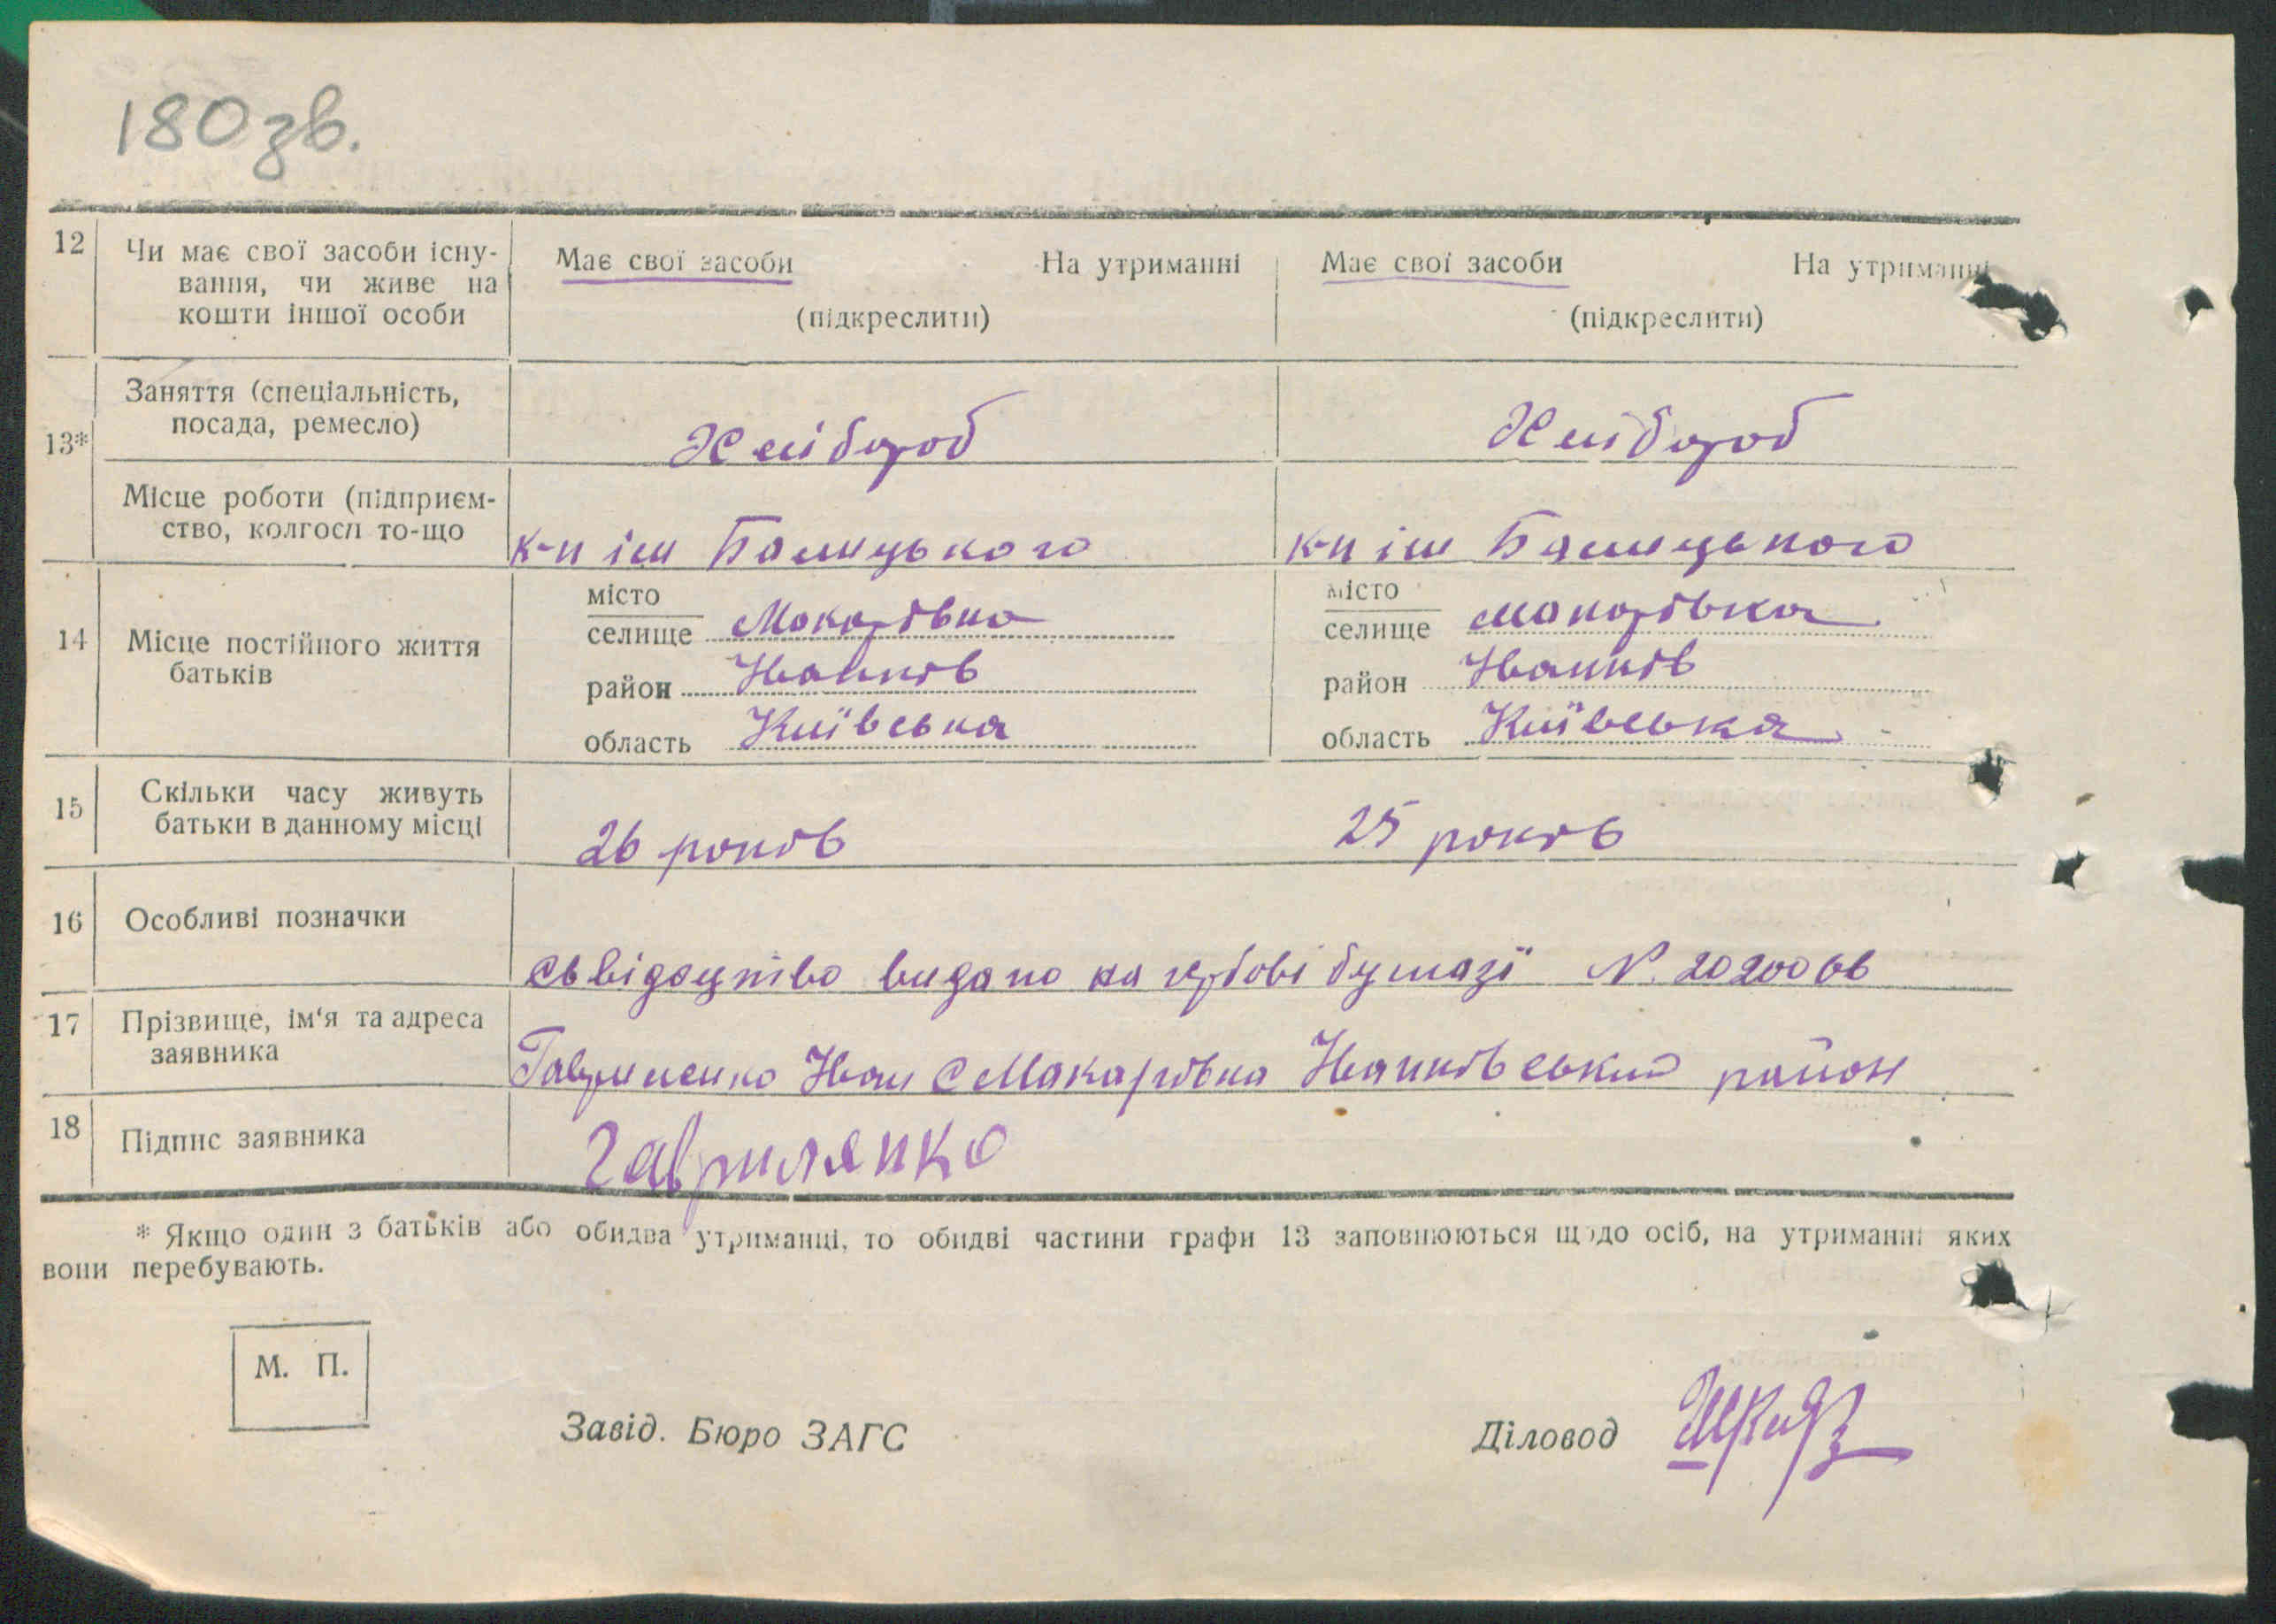 180 зв.
12 Чи має свої засоби існу-
вання, чи живе на
кошти іншої особи
Має свої засоби На утриманні
(підкреслити)
Має свої засоби На утриманні
(підкреслити)
13*
Заняття (спеціальність,
посада, ремесло)
Хлібороб
Хлібороб
Місце роботи (підприєм-
ство, колгосп то-що
к-п ім Балицького
к-п ім Балицького
14 Місце постійного життя
батьків
місто
селище Макарівка
район Іванків
область Київська
місто
селище Макарівка
район Іванків
область Київська
15 Скільки часу живуть
батьки в данному місці
26 років
25 років
16 Особливі позначки
Свідоцтво видано на гербові бумазі № 2020066
17 Прізвище, ім'я та адреса
заявника
Гавриленко Іван с Макарівка Іванківський район
18 Підпис заявника
Гаврилянко
* Якщо один з батьків або обидва утриманці, то обидві частини графи 13 заповнюються щодо осіб, на утриманні яких
вони перебувають.
М. П.
Завід. Бюро ЗАГС
Діловод